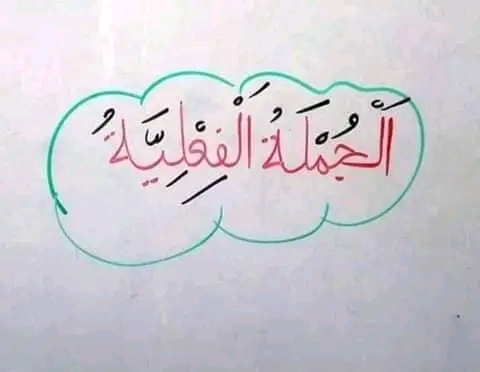 اَلْجُمْلَةُ الْفِعْلِيَّةُ